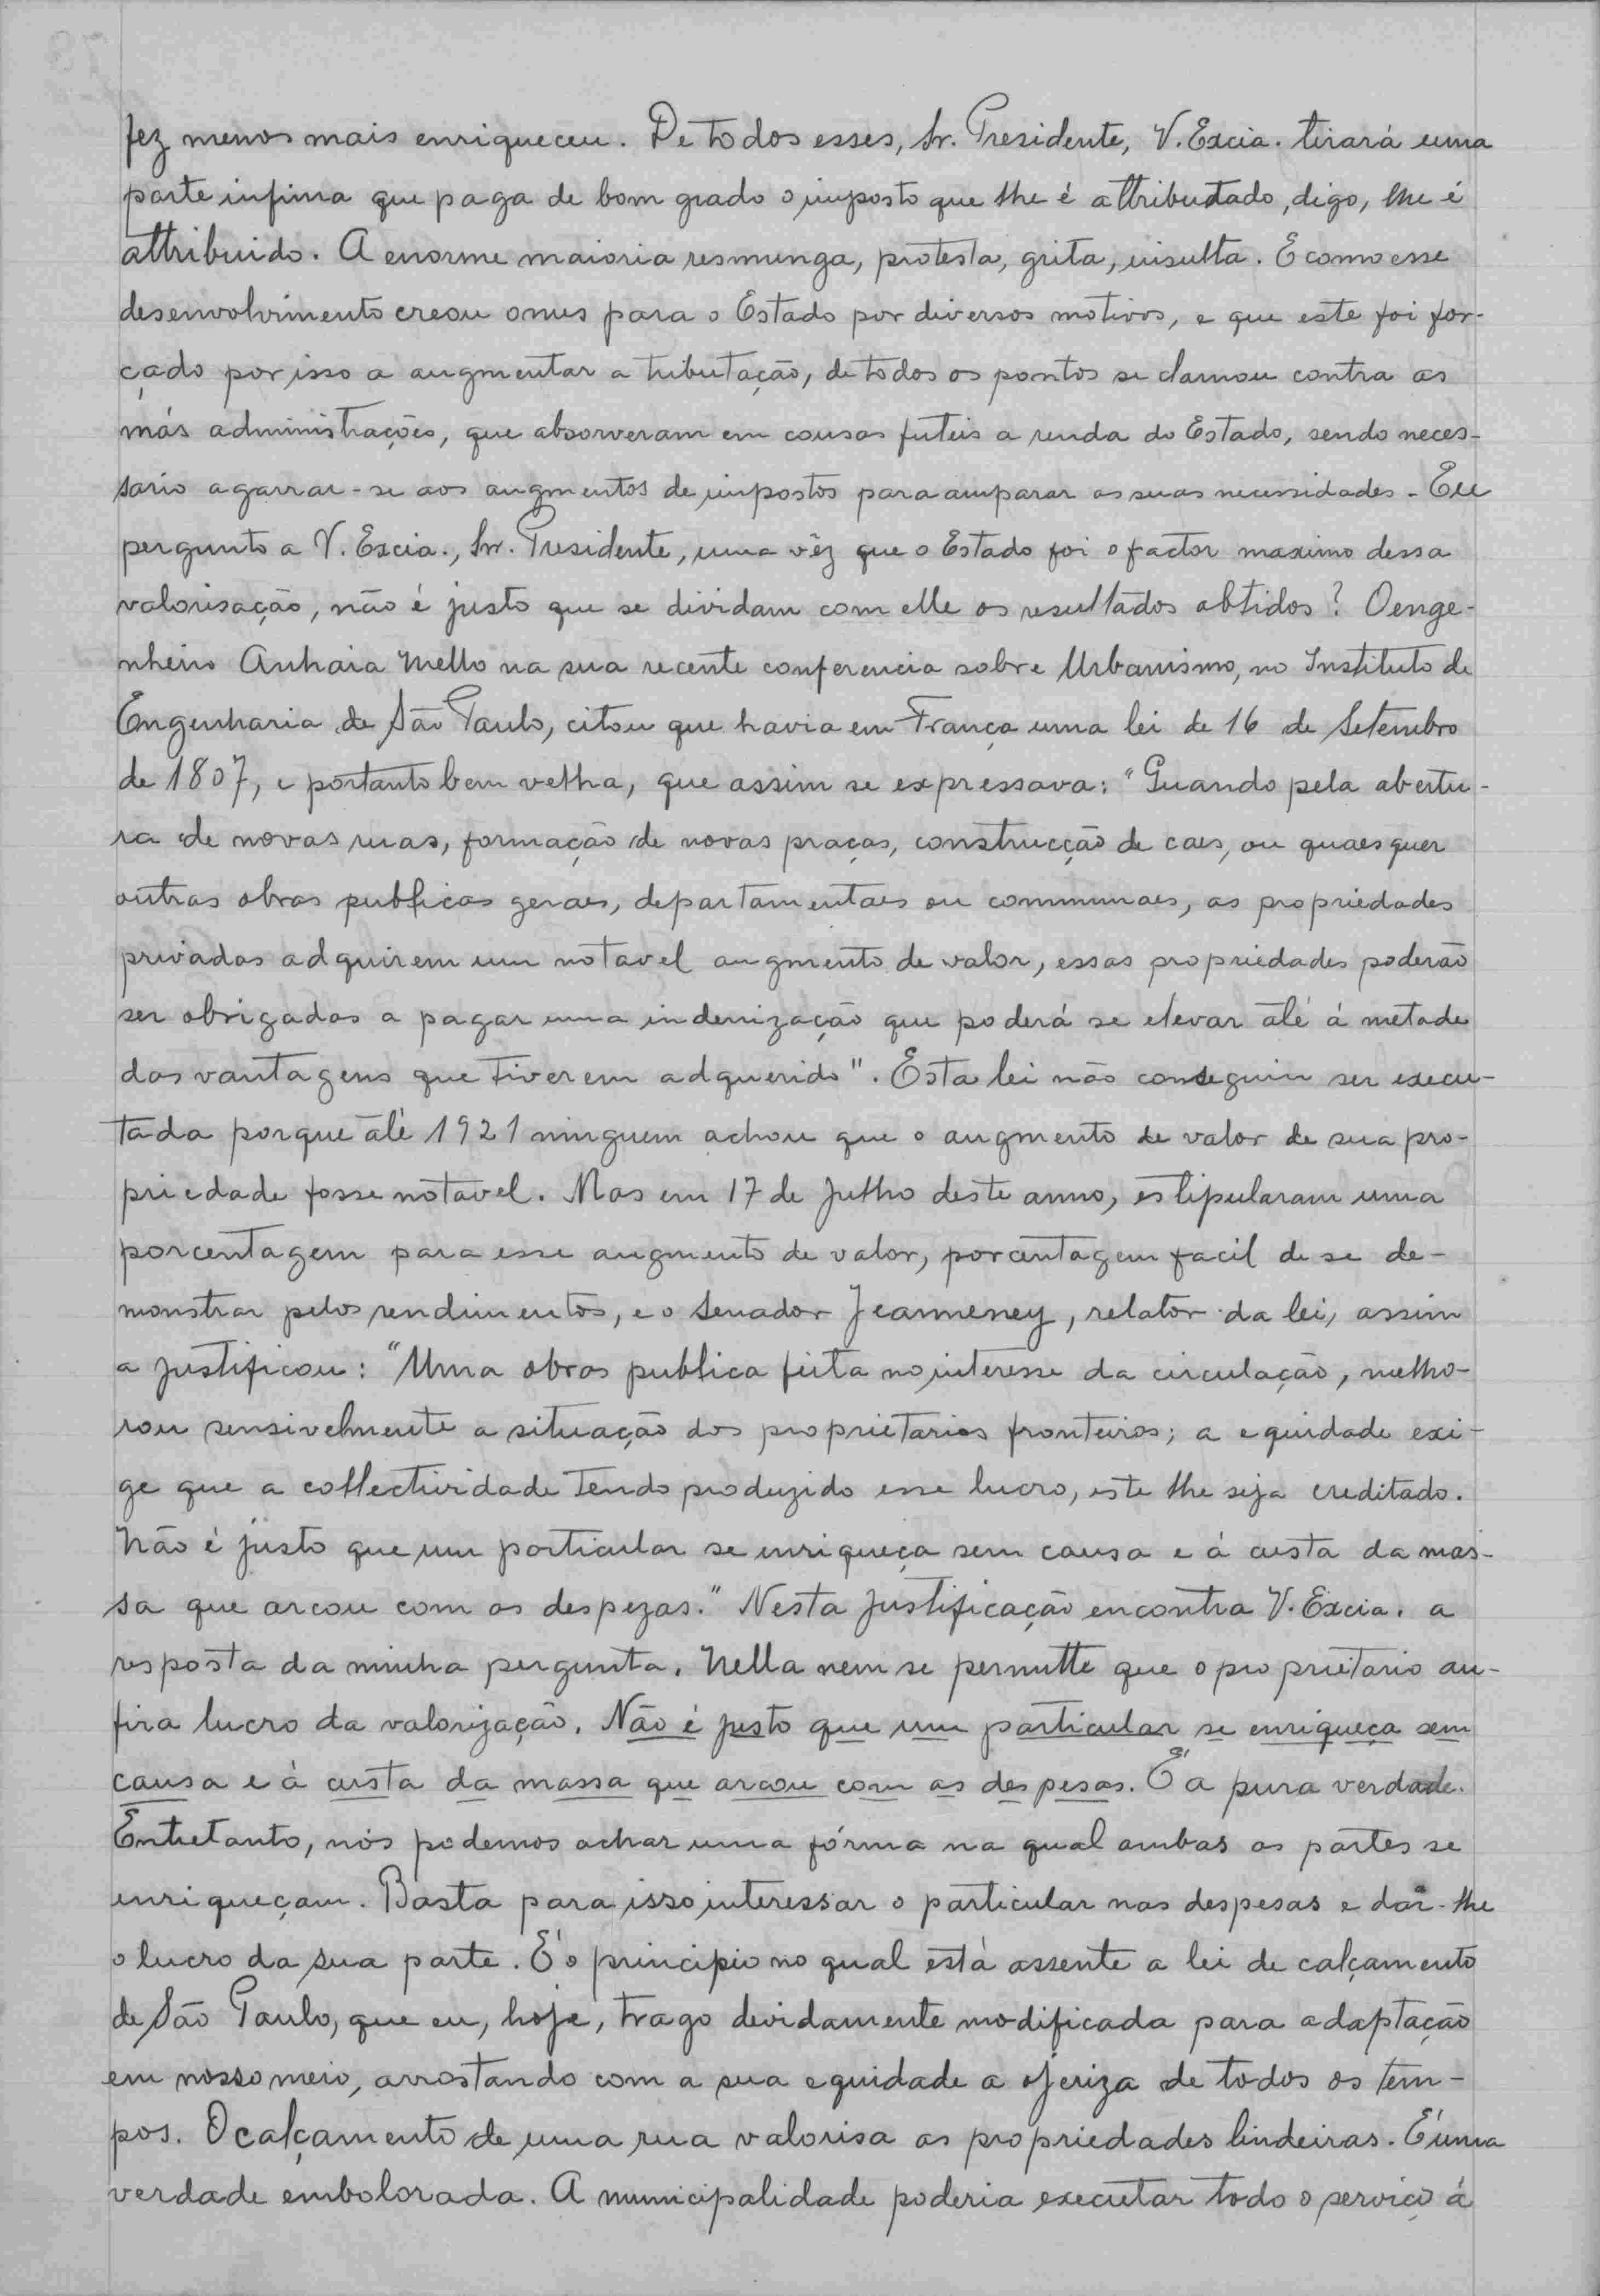 fez menos mais enriqueceu. De todos esses, Sr. Presidente, V. Excia. tirará uma
parte infima que paga de bom grado o imposto que lhe é attributado, digo, lhe é
attribuido. A enorme maioria resmunga, protesta, grita, insulta. E como esse
desenvolvimento creou onus para o Estado por diversos motivos, e que este foi for-
çado por isso a augmentar a tributação, de todos os pontos se clamou contra as
más administrações, que absorveram em cousas futeis a renda do Estado, sendo neces-
sario agarrar-se aos augmentos de impostos para amparar as suas necessidades. Eu
pergunto a V. Excia., Snr. Presidente, uma vêz que o Estado foi o factor maximo dessa
valorisação, não é justo que se dividam com elle os resultados obtidos? O enge-
nheiro Anhaia Mello na sua recente conferencia sobre Urbanismo, no Instituto de
Engenharia de São Paulo, citou que havia em França uma lei de 16 de Setembro
de 1807, e portanto bem velha, que assim se expressava: "Quando pela abertu-
ra de novas ruas, formação de novas praças, construcção de caes, ou quaesquer
outras obras publicas geraes, departamentaes ou communaes, as propriedades
privadas adquirem um notavel augmento de valor, essas propriedades poderão
ser obrigadas a pagar uma indenização que poderá se elevar até á metade
das vantagens que tiverem adquerido". Esta lei não conseguiu ser execu-
tada porque até 1921 ninguem achou que o augmento de valor de sua pro-
priedade fosse notavel. Mas em 17 de Julho deste anno, estipularam uma
porcentagem para esse augmento de valor, porcentagem facil de se de-
monstrar pelos rendimentos, e o Senador Jeanneney, relator da lei, assim
a justificou: "Uma obras publica feita no interesse da circulação, melho-
rou sensivelmente a situação dos proprietarios fronteiros; a equidade exi-
ge que a collectividade tendo produzido esse lucro, este lhe seja creditado.
Não é justo que um particular se enriqueça sem causa e á custa da mas-
sa que arcou com as despezas." Nesta justificação encontra V. Excia. a
resposta da minha pergunta. Nella nem se permitte que o proprietario au-
fira lucro da valorização. Não é justo que um particular se enriqueça sem
causa e á custa da massa que arcou com as despesas. É a pura verdade.
Entretanto, nós podemos achar uma fórma na qual ambas as partes se
enriqueçam. Basta para isso interessar o particular nas despesas e dar-lhe
o lucro da sua parte. É o principio no qual está assente a lei de calçamento
de São Paulo, que eu, hoje, trago devidamente modificada para adaptação
em nosso meio, arrostando com a sua equidade a ojeriza de todos os tem-
pos. O calçamento de uma rua valorisa as propriedades lindeiras. É uma
verdade embolorada. A municipalidade poderia executar todo o serviço á